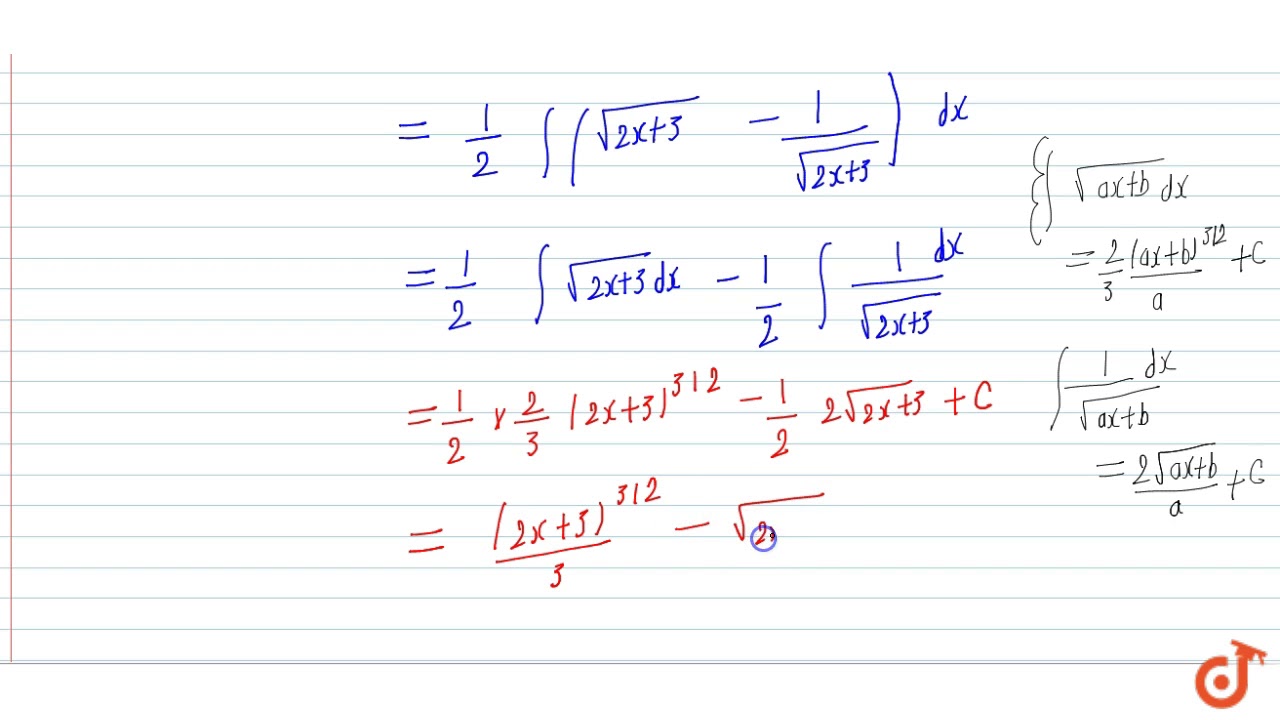 = 1/2 ∫ ( √(2x+3) − 1/√(2x+3) ) dx
= 1/2 ∫ √(2x+3) dx − 1/2 ∫ 1/√(2x+3) dx
= 1/2 × 2/3 (2x+3)^3/2 − 1/2 2√(2x+3) + C
= (2x+3)^3/2 / 3 − √2
{∫ √(ax+b) dx
= 2/3 (ax+b)^3/2 / a + C
∫ 1/√(ax+b) dx
= 2√(ax+b) / a + C